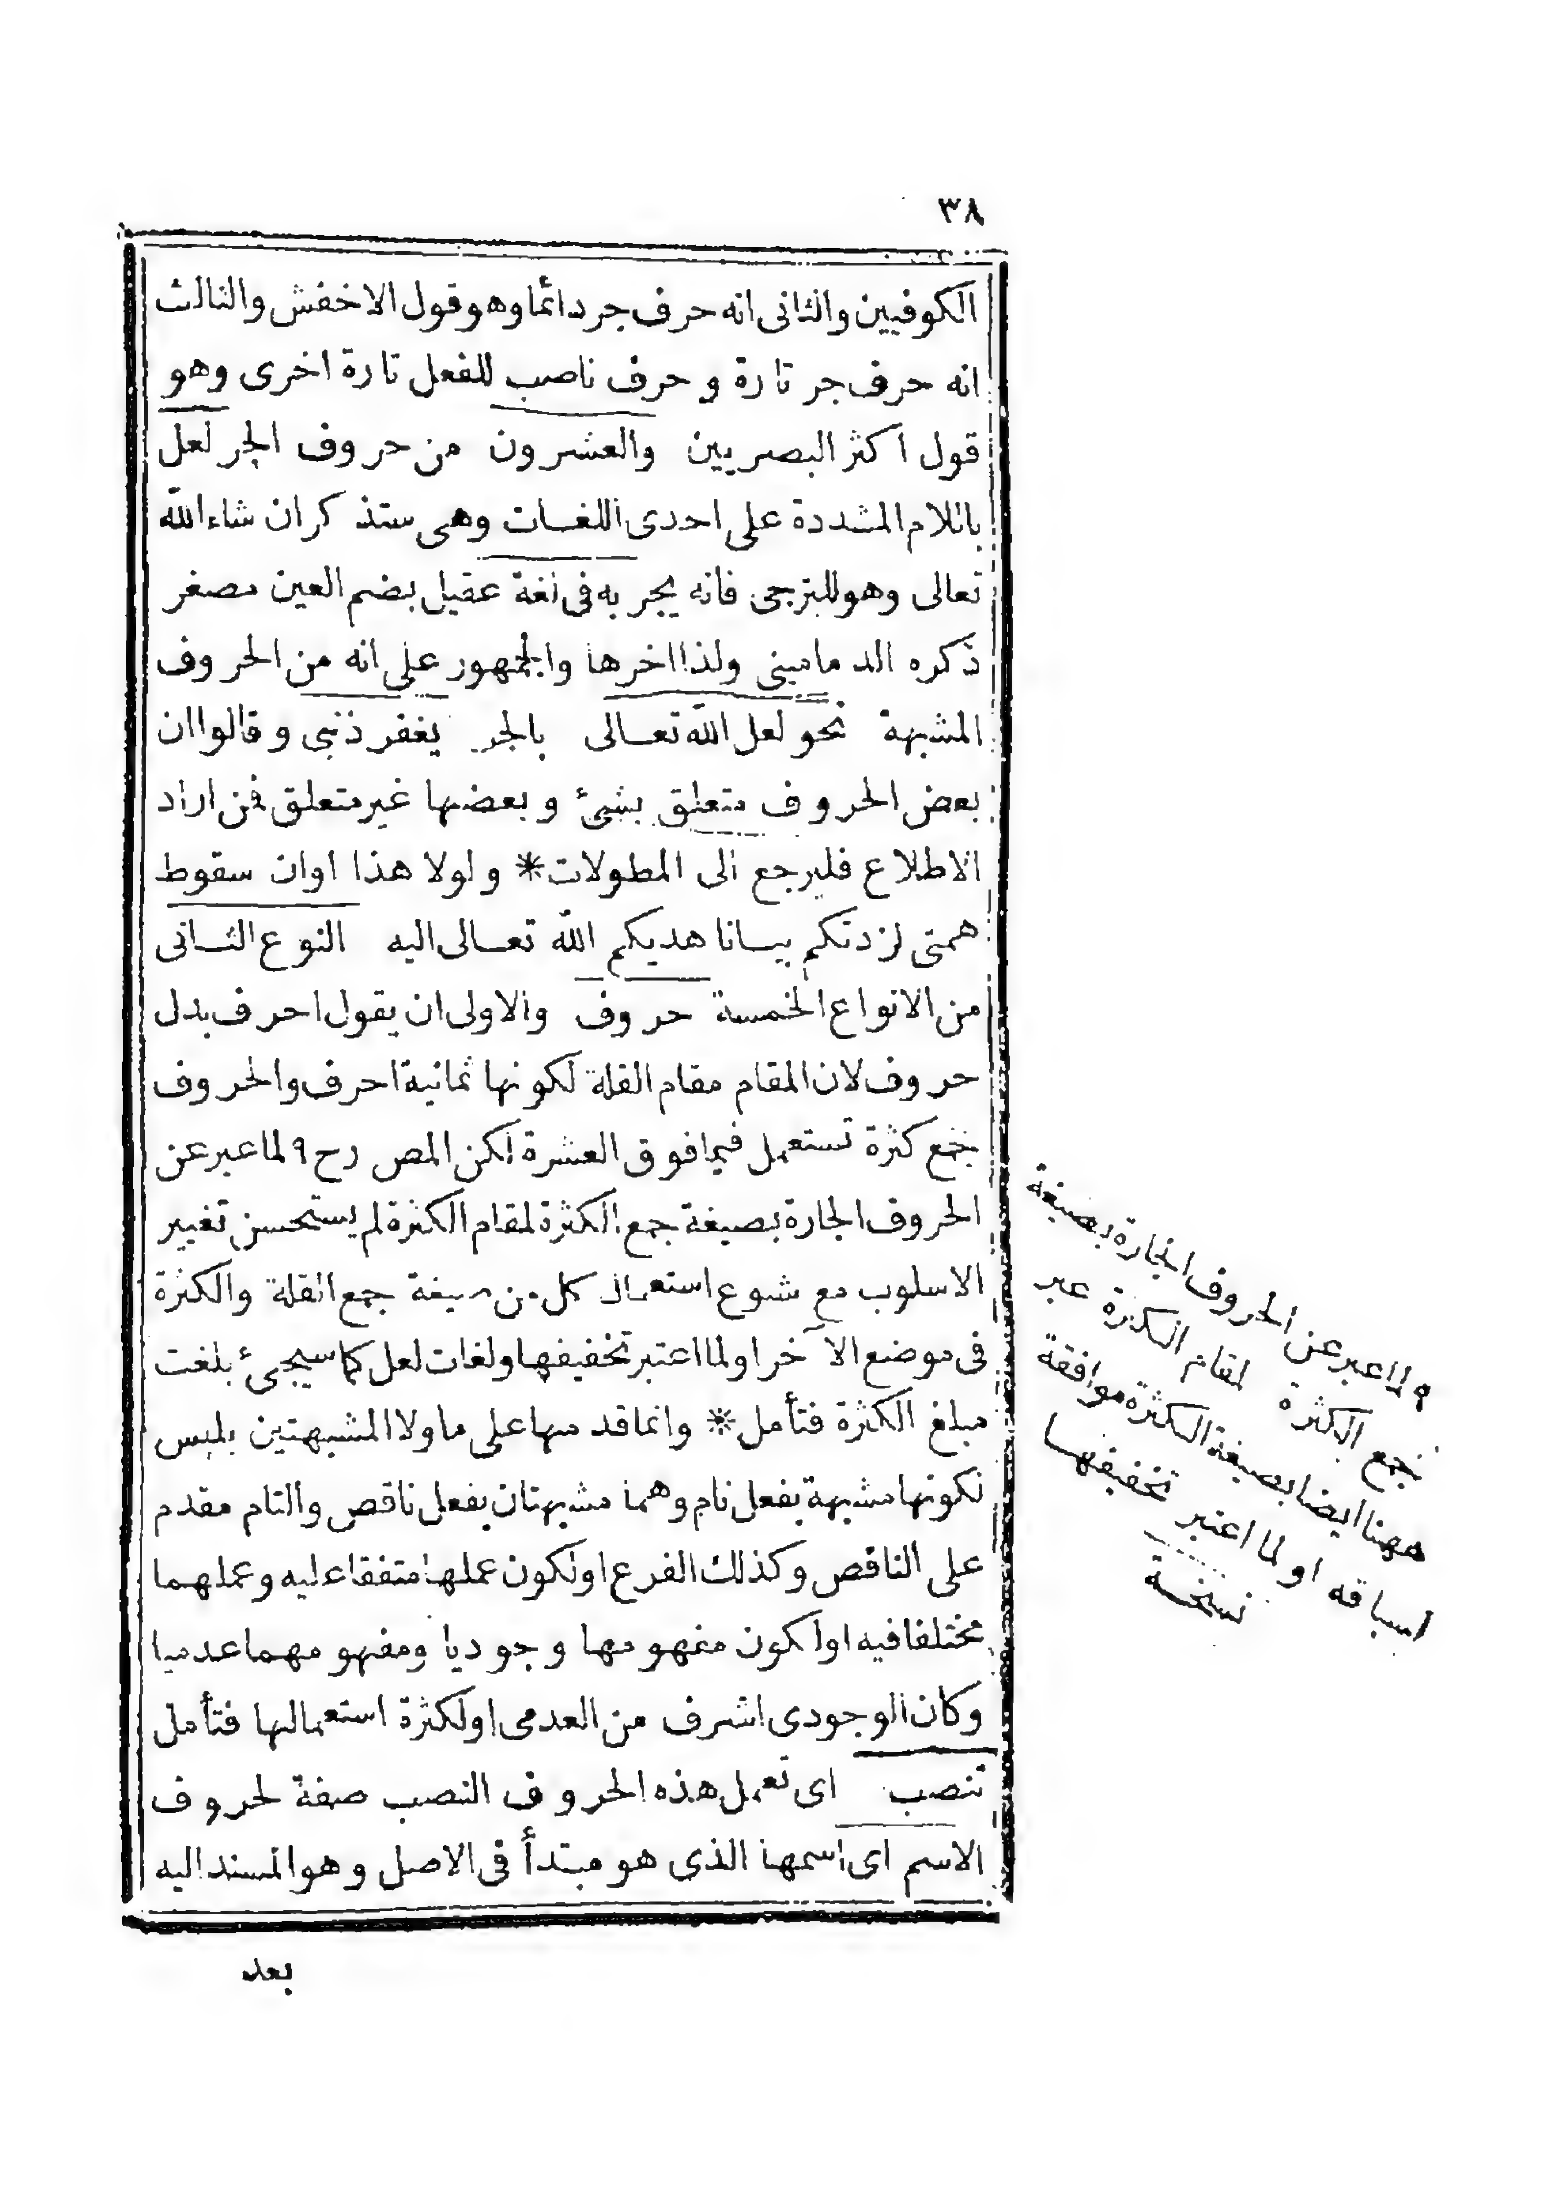 ٣٨
الكوفيين والثانى انه حرف جر دائما وهو قول الاخفش والثالث
انه حرف جر تارة و حرف ناصب للفعل تارة اخرى وهو
قول اكثر البصريين والعشرون من حروف الجر لعل
باللام المشددة على احدى اللغات وهى ستذكر ان شاء الله
تعالى وهو للترجى فانه يجر به فى لغة عقيل بضم العين مصغر
ذكره الدمامينى ولذا اخرها والجمهور على انه من الحروف
المشبهة نحو لعل الله تعالى بالجر يغفر ذنبى وقالوا ان
بعض الحروف متعلق بشئ وبعضها غير متعلق فمن اراد
الاطلاع فليرجع الى المطولات * ولولا هذا اوان سقوط
همتى لزدتكم بيانا هديكم الله تعالى اليه النوع الثانى
من الانواع الخمسة حروف والاولى ان يقول احرف بدل
حروف لان المقام مقام القلة لكونها ثمانية احرف والحروف
جمع كثرة تستعمل فيما فوق العشرة لكن المص رح ٩ لما عبر عن
الحروف الجارة بصيغة جمع الكثرة لمقام الكثرة لم يستحسن تغيير
الاسلوب مع شيوع استعمال كل من صيغة جمع القلة والكثرة
فى موضع الآخر او لما اعتبر تخفيفها ولغات لعل كما سيجئ بلغت
مبلغ الكثرة فتأمل * وانما قدمها على ما ولا المشبهتين بليس
لكونها مشبهة بفعل تام وهما مشبهتان بفعل ناقص والتام مقدم
على الناقص وكذلك الفرع او لكون عملها متفقا عليه وعملهما
مختلفا فيه او لكون مفهومها وجوديا ومفهومهما عدميا
وكان الوجودى اشرف من العدمى او لكثرة استعمالها فتأمل
تنصب اى تعمل هذه الحروف النصب صفة لحروف
الاسم اى اسمها الذى هو مبتدأ فى الاصل وهو المسند اليه
بعد
٩ لما عبر عن الحروف الجارة بصيغة
جمع الكثرة لمقام الكثرة عبر
ههنا ايضا بصيغة الكثرة موافقة
لسباقه او لما اعتبر تخفيفها
نسخة